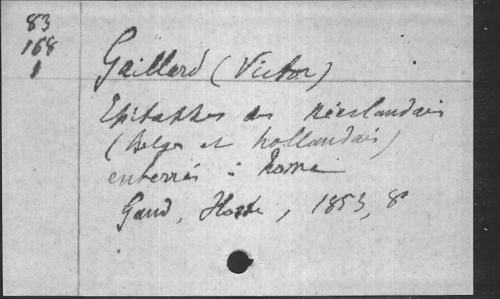 83
168
1
Gaillard (Victor)
Epitaphes des néerlandais
(Belges et hollandais)
enterrés à Rome
Gand, Hoste, 1853, 8°